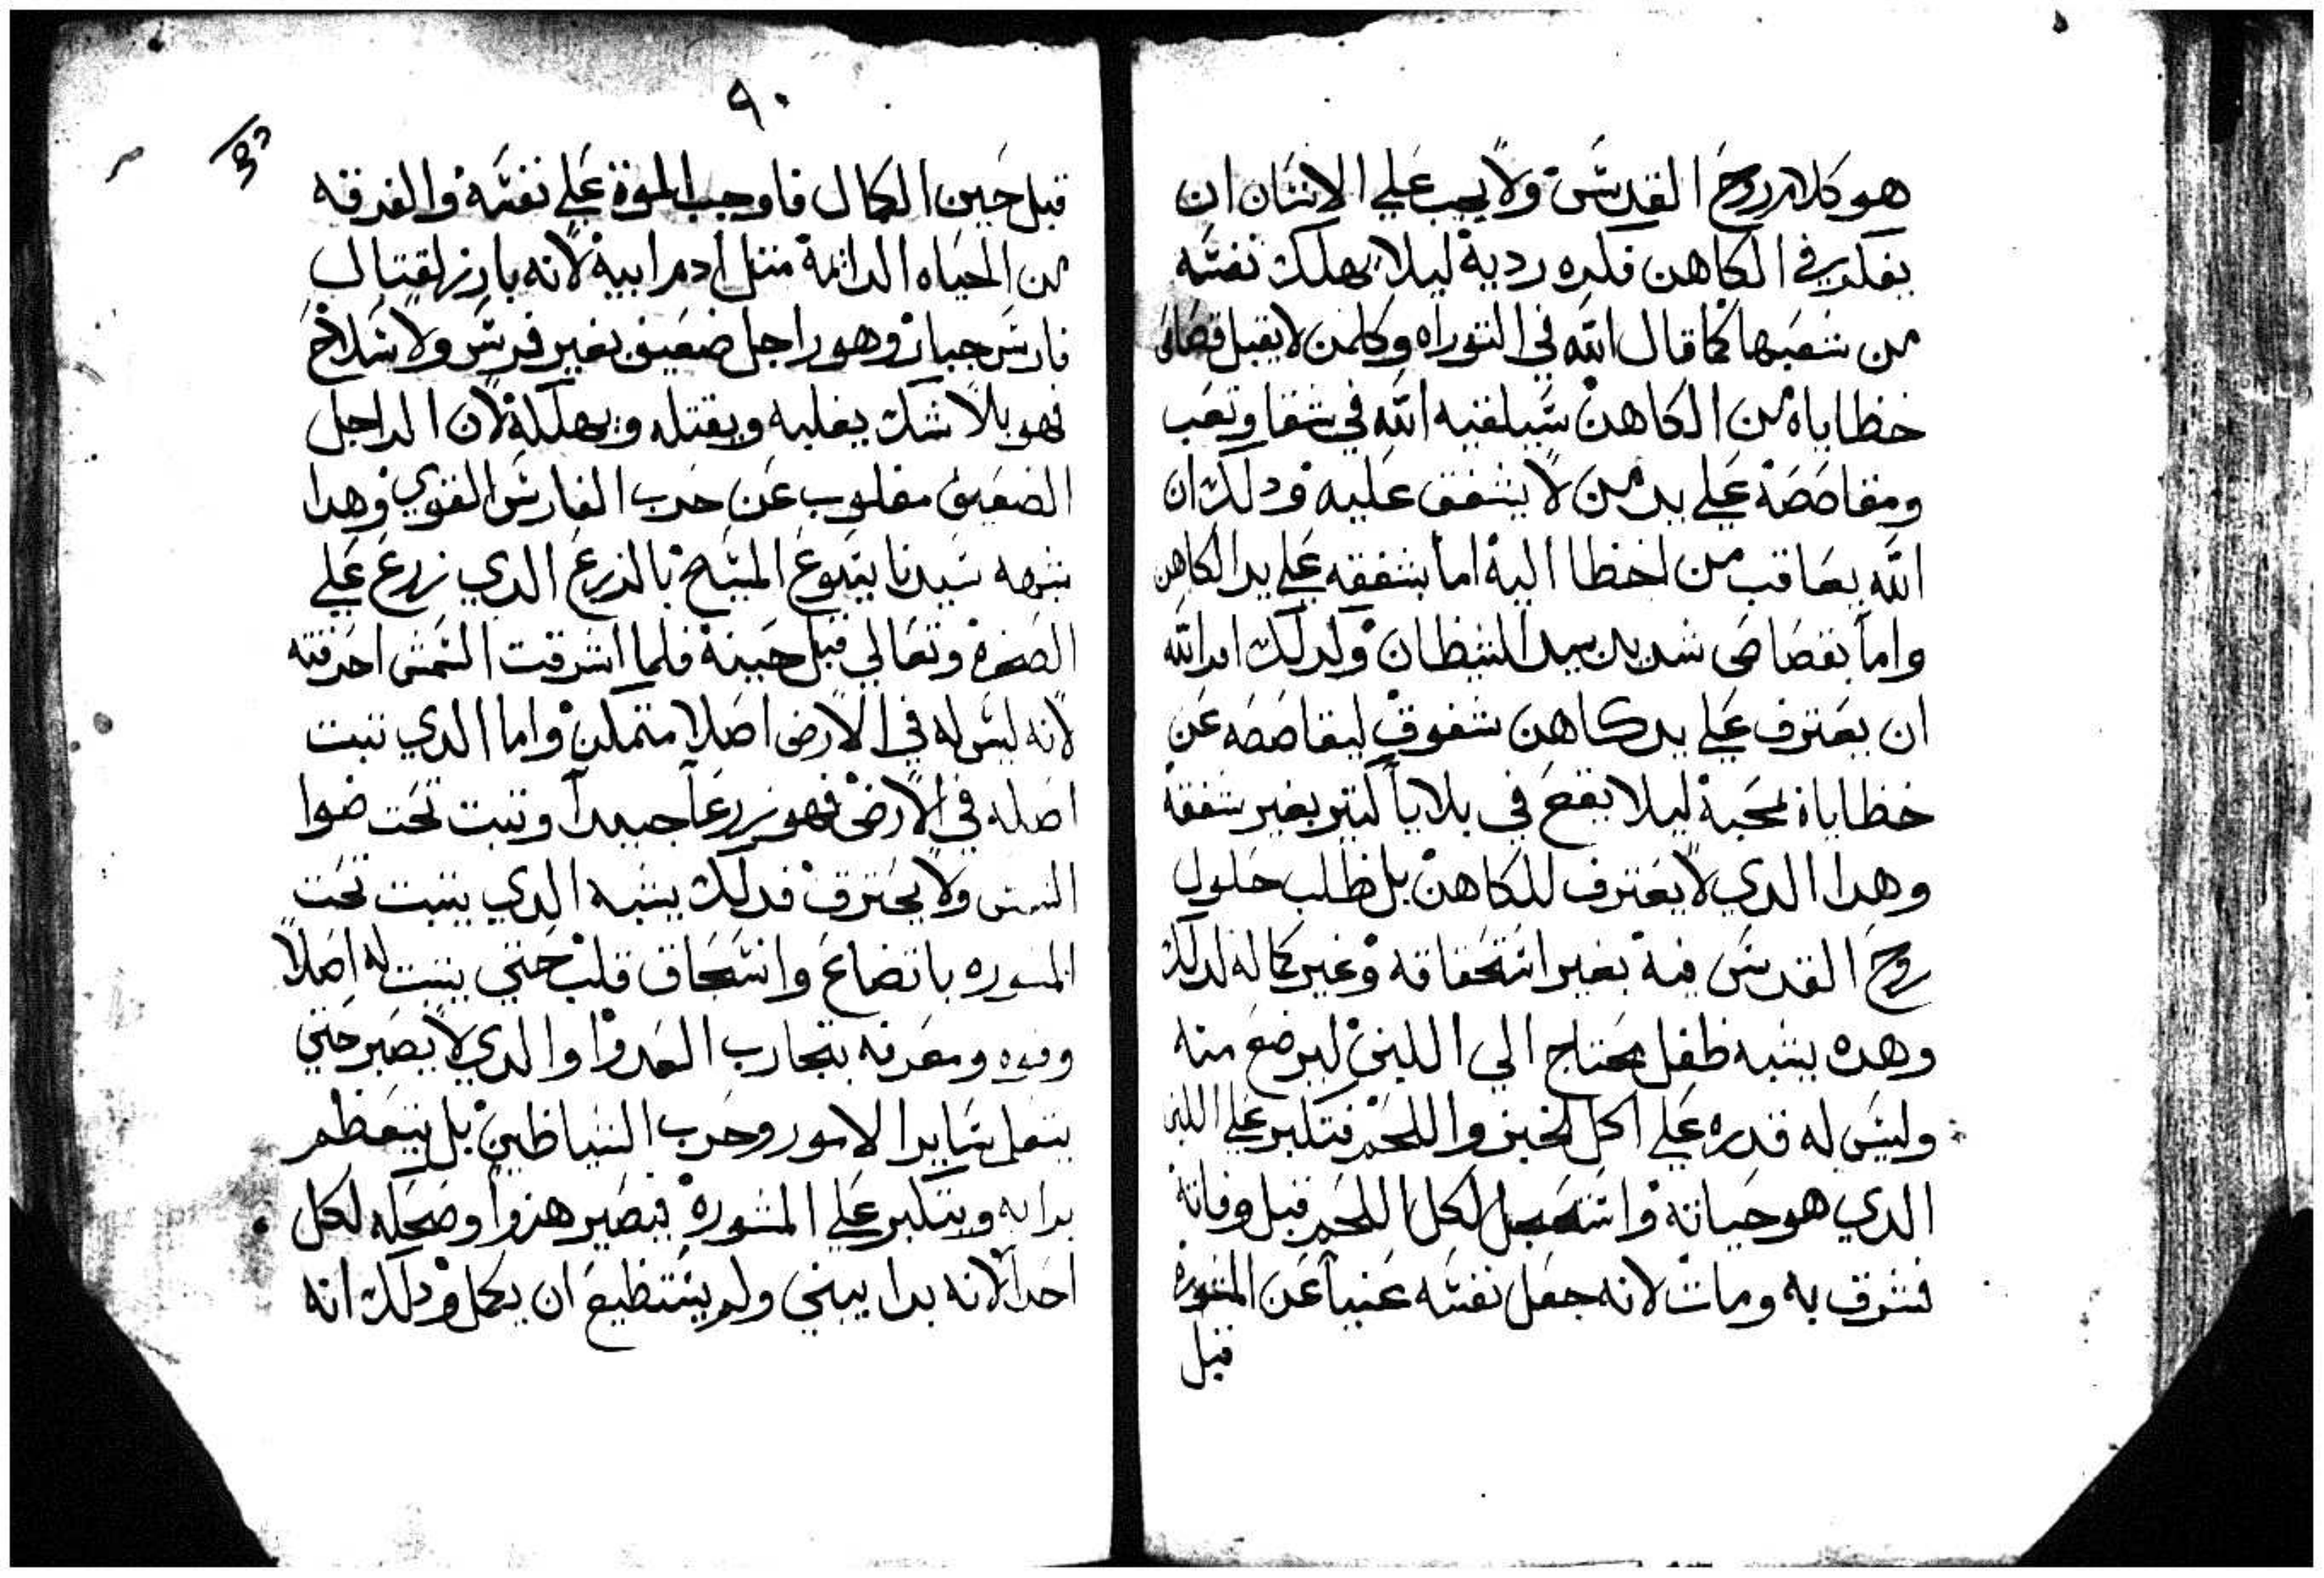 هو كلام روح القدس ولا يجب علي الانسان ان
يفكر في الكاهن فكره ردية ليلا يهلك نفسه
من شعبها كما قال الله في التوراه وكلمن لا يقبل قصاص
خطاياه من الكاهن سيلقيه الله في شقا وتعب
ومقاصصة علي يد من لا يشفق عليه ودلك ان
الله يعاقب من اخطا اليه اما بشفقه علي يد الكاهن
واما بقصاص شديد بيد الشيطان ولدلك امر الله
ان يعترف علي يد كاهن شفوق ليقاصصه عن
خطاياه بمحبة ليلا يقع في بلايا كتير بغير شفقة
وهدا الدي لا يعترف للكاهن بل طلب حلول
روح القدس فيه بغير استحقاقه وغير كماله لدلك
وهده يشبه طفل محتاج الي اللبن ليرضع منه
وليس له قدره علي اكل الخبز واللحم فتكبر علي اللبن
الدي هو حياته واستعجل لكل اللحم قبل وقاته
فشرق به ومات لانه جعل نفسه غنيا عن المشوره
قبل
٩٠
قبل حين الكمال فاوجب الموة علي نفسه والفرقه
من الحياه الدائمة متل ادم ابيه لانه بارز لقتال
فارس جبار وهو راجل ضعيف بغير فرس ولا سلاح
فهو بلا شك يغلبه ويقتله ويهلكة لان الراجل
الضعيف مغلوب عن حرب الفارس القوي وهدا
شبهه سيدنا يسوع المسيح بالزرع الدي زرع علي
الصخرة وتعالي قبل حينه فلما اشرقت الشمس احرقته
لانه ليس له في الارض اصلا متمكن واما الدي تبت
اصله في الارض فهو زرعا جيدا وتبت تحت ضوا
الشمس ولا يحترق فدلك يشبه الدي يتبت تحت
المشوره باتضاع وانسحاق قلب حتي يتبت له اصلا
وقوه ومعرفه بتجارب العدوا والدي لا يصبر حتي
يتعلم ساير الامور وحرب الشياطين بل يتعظم
بدايه ويتكبر علي المشورة فيصير هزوا وضحكه لكل
احدا لانه بدا يبني ولم يستطيع ان يكمل ودلك انه